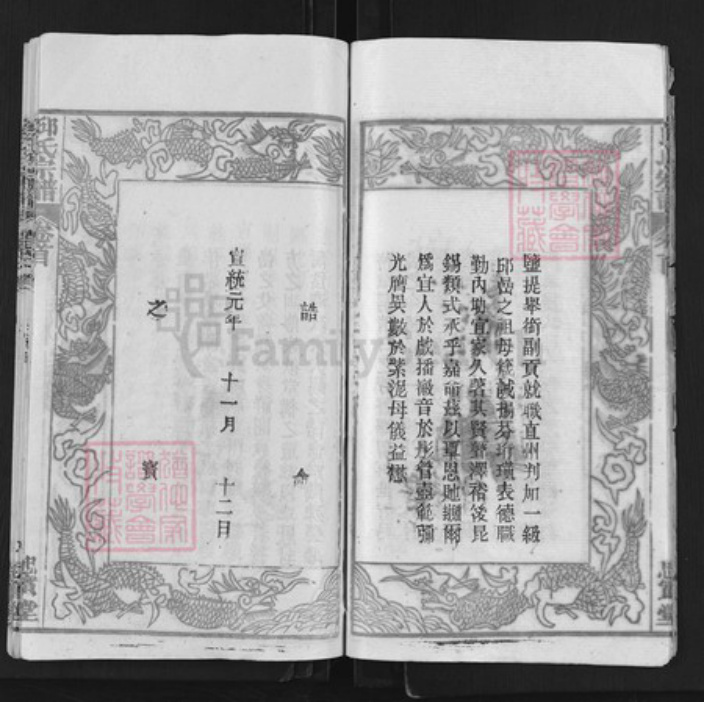 鹽提舉銜副貢就職直州判加一級
邱嵒之祖母箴誡揚芬珩璜表德職
勤內助宜家久著其賢聲澤裕後昆
錫類式承乎嘉命茲以覃恩貤贈爾
為宜人於戲播徽音於彤管壼範彌
光膺異數於紫泥母儀益懋
誥命
宣統元年 十一月 十二日
之寶
邱氏宗譜 卷首
忠實堂
FamilySearch